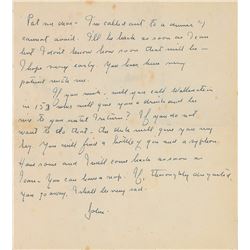 Pat my dear - I'm called out to a dinner I
cannot avoid. I'll be back as soon as I can
but I don't know how soon that will be -
I hope very early. You have been very
patient with me.
If you wish, will you call Wellington
in 153 who will give you a drink and be
nice to you until I return? If you do not
want to do that - the desk will give you my
key. You will find a bottle of gin and a syphon
here and I will come back as soon as
I can. You can have a nap. If, thoroughly disgusted,
you go away, I shall be very sad.
John -